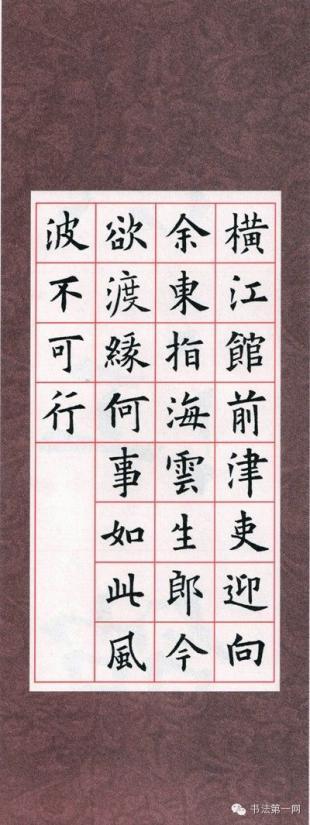 橫江館前津吏迎向
余東指海雲生郎今
欲渡緣何事如此風
波不可行
书法第一网